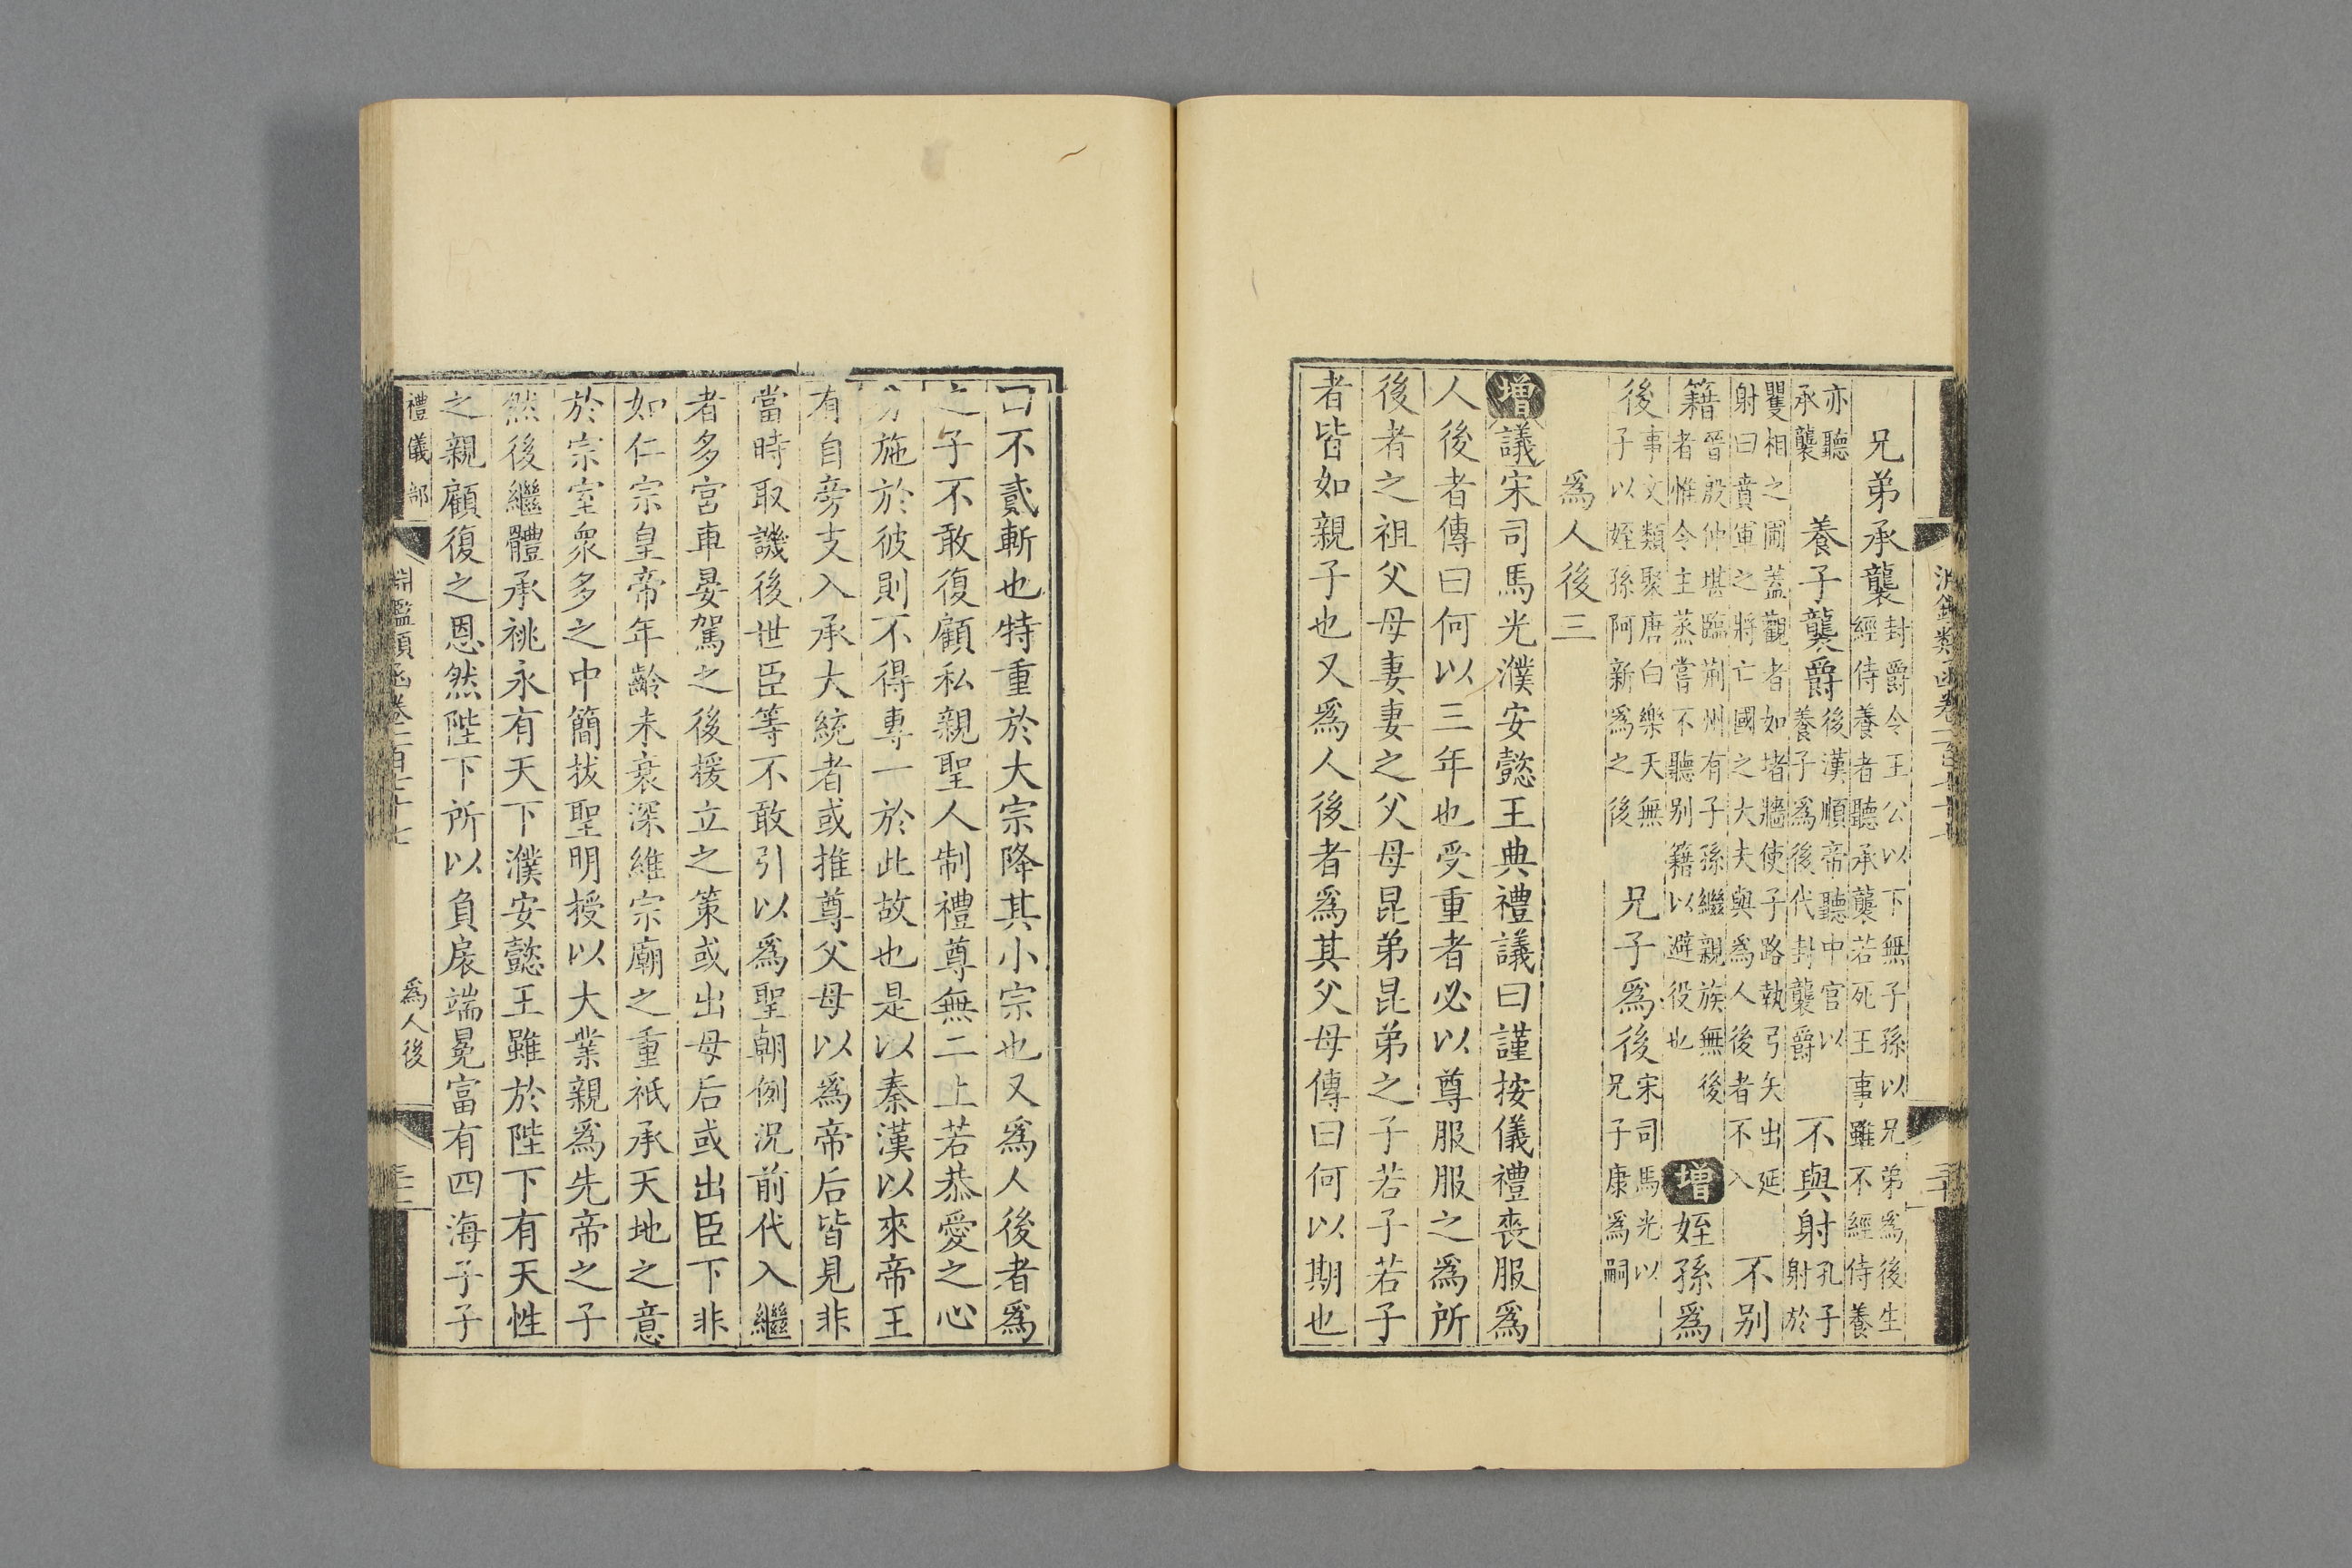 兄弟承襲封爵令王公以下無子孫以兄弟爲後生
經侍養者聽承襲若死王事雖不經侍養
亦聽
承襲
養子襲爵後漢順帝聽中官以
養子爲後代封襲爵
不與射孔子
射於
矍相之圃蓋觀者如堵牆使子路執弓矢出延
射曰賁軍之將亡國之大夫與爲人後者不入
不别
籍晉殷仲堪臨荊州有子孫繼親族無後
者惟令主蒸嘗不聽别籍以避役也
增姪孫爲
後事文類聚唐白樂天無
子以姪孫阿新爲之後
兄子爲後宋司馬光以
兄子康爲嗣
爲人後三
增議宋司馬光濮安懿王典禮議曰謹按儀禮喪服爲
人後者傳曰何以三年也受重者必以尊服服之爲所
後者之祖父母妻妻之父母昆弟昆弟之子若子若子
者皆如親子也又爲人後者爲其父母傳曰何以期也
曰不貳斬也特重於大宗降其小宗也又爲人後者爲
之子不敢復顧私親聖人制禮尊無二上若恭愛之心
分施於彼則不得專一於此故也是以秦漢以來帝王
有自旁支入承大統者或推尊父母以爲帝后皆見非
當時取譏後世臣等不敢引以爲聖朝例況前代入繼
者多宮車晏駕之後援立之策或出母后或出臣下非
如仁宗皇帝年齡未衰深維宗廟之重祇承天地之意
於宗室衆多之中簡拔聖明授以大業親爲先帝之子
然後繼體承祧永有天下濮安懿王雖於陛下有天性
之親顧復之恩然陛下所以負扆端冕富有四海子子
禮儀部
淵鑑類函卷二百七十七
爲人後